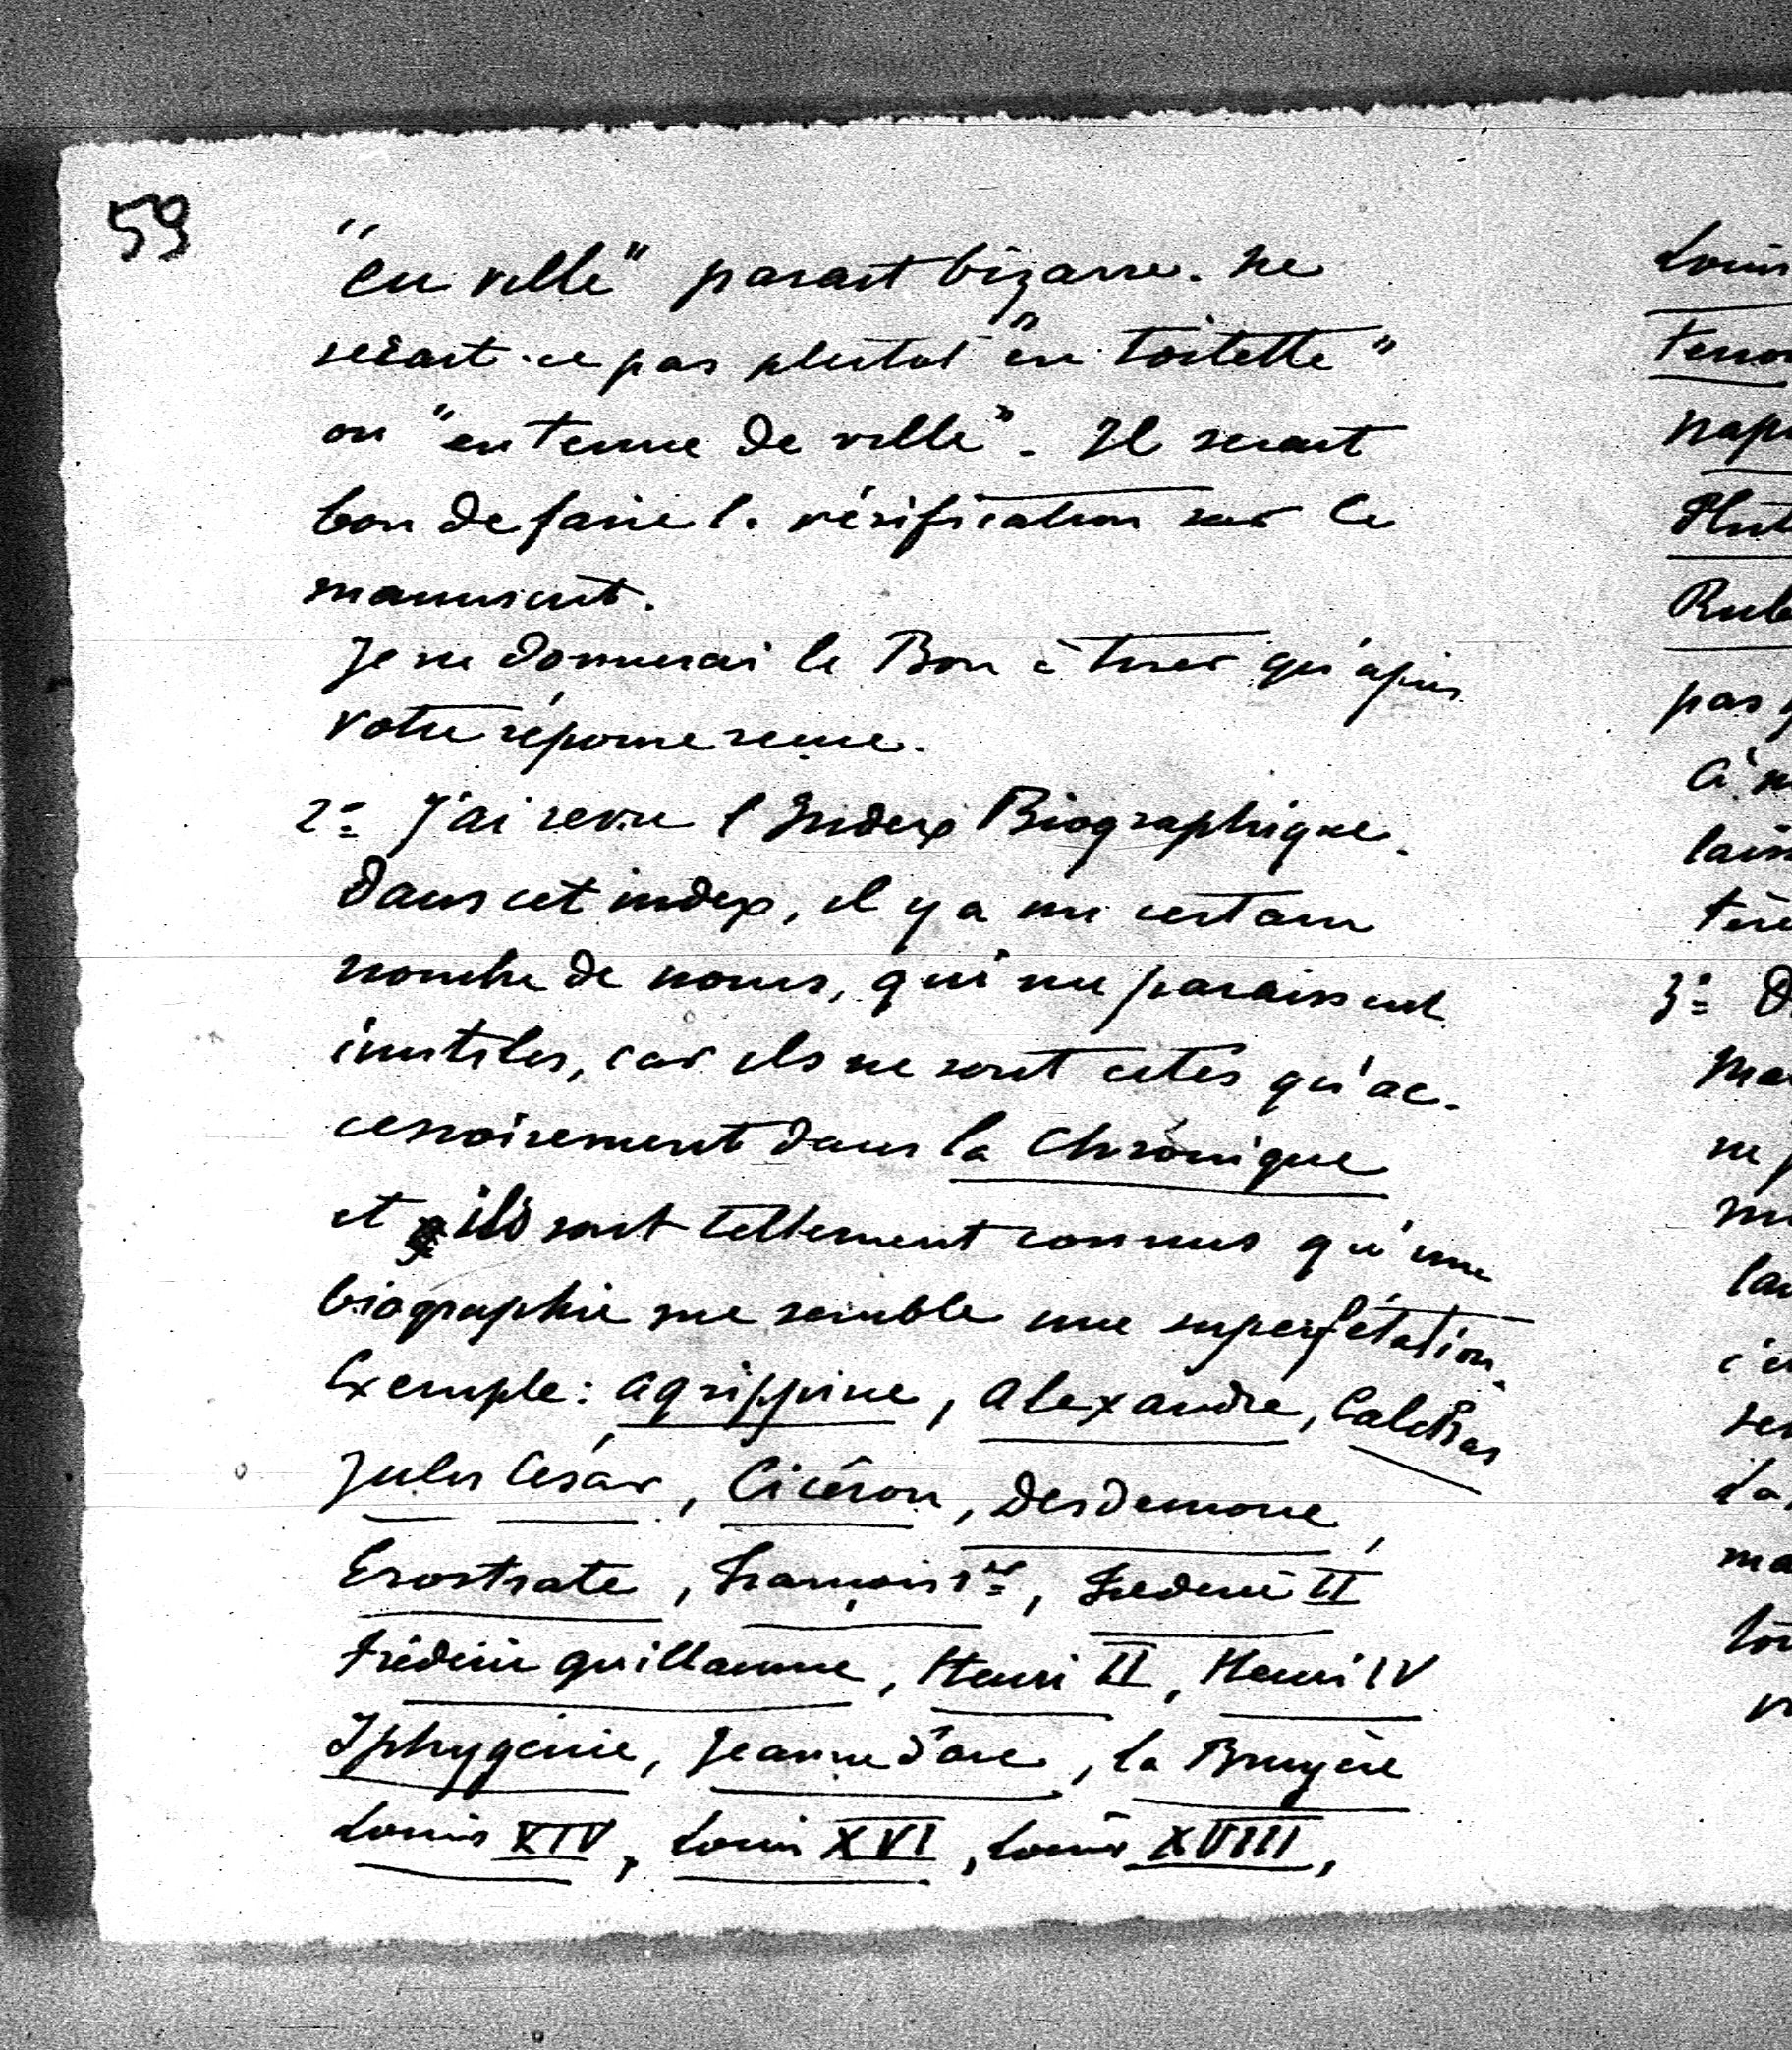 59
"en ville" parait bizarre. Ne
serait-ce pas plutot "en toilette"
ou "en tenue de ville". Il serait
bon de faire la vérification sur le
manuscrit.
Je ne donnerai le Bon à tirer qu'après
votre réponse reçue.
2° J'ai revu l'Index Biographique.
Dans cet index, il y a un certain
nombre de noms, qui me paraissent
inutiles, car ils ne sont cités qu'ac-
cessoirement dans la Chronique
et ils sont tellement connus qu'une
biographie me semble une superfétation.
Exemple: Agrippine, Alexandre, Calchas
Jules César, Cicéron, Desdemone,
Erostrate, François 1er, Frédéric II
Frédéric Guillaume, Henri II, Henri IV
Iphygénie, Jeanne d'Arc, La Bruyère
Louis XIV, Louis XVI, Louis XVIII,
Louis
pas
3°